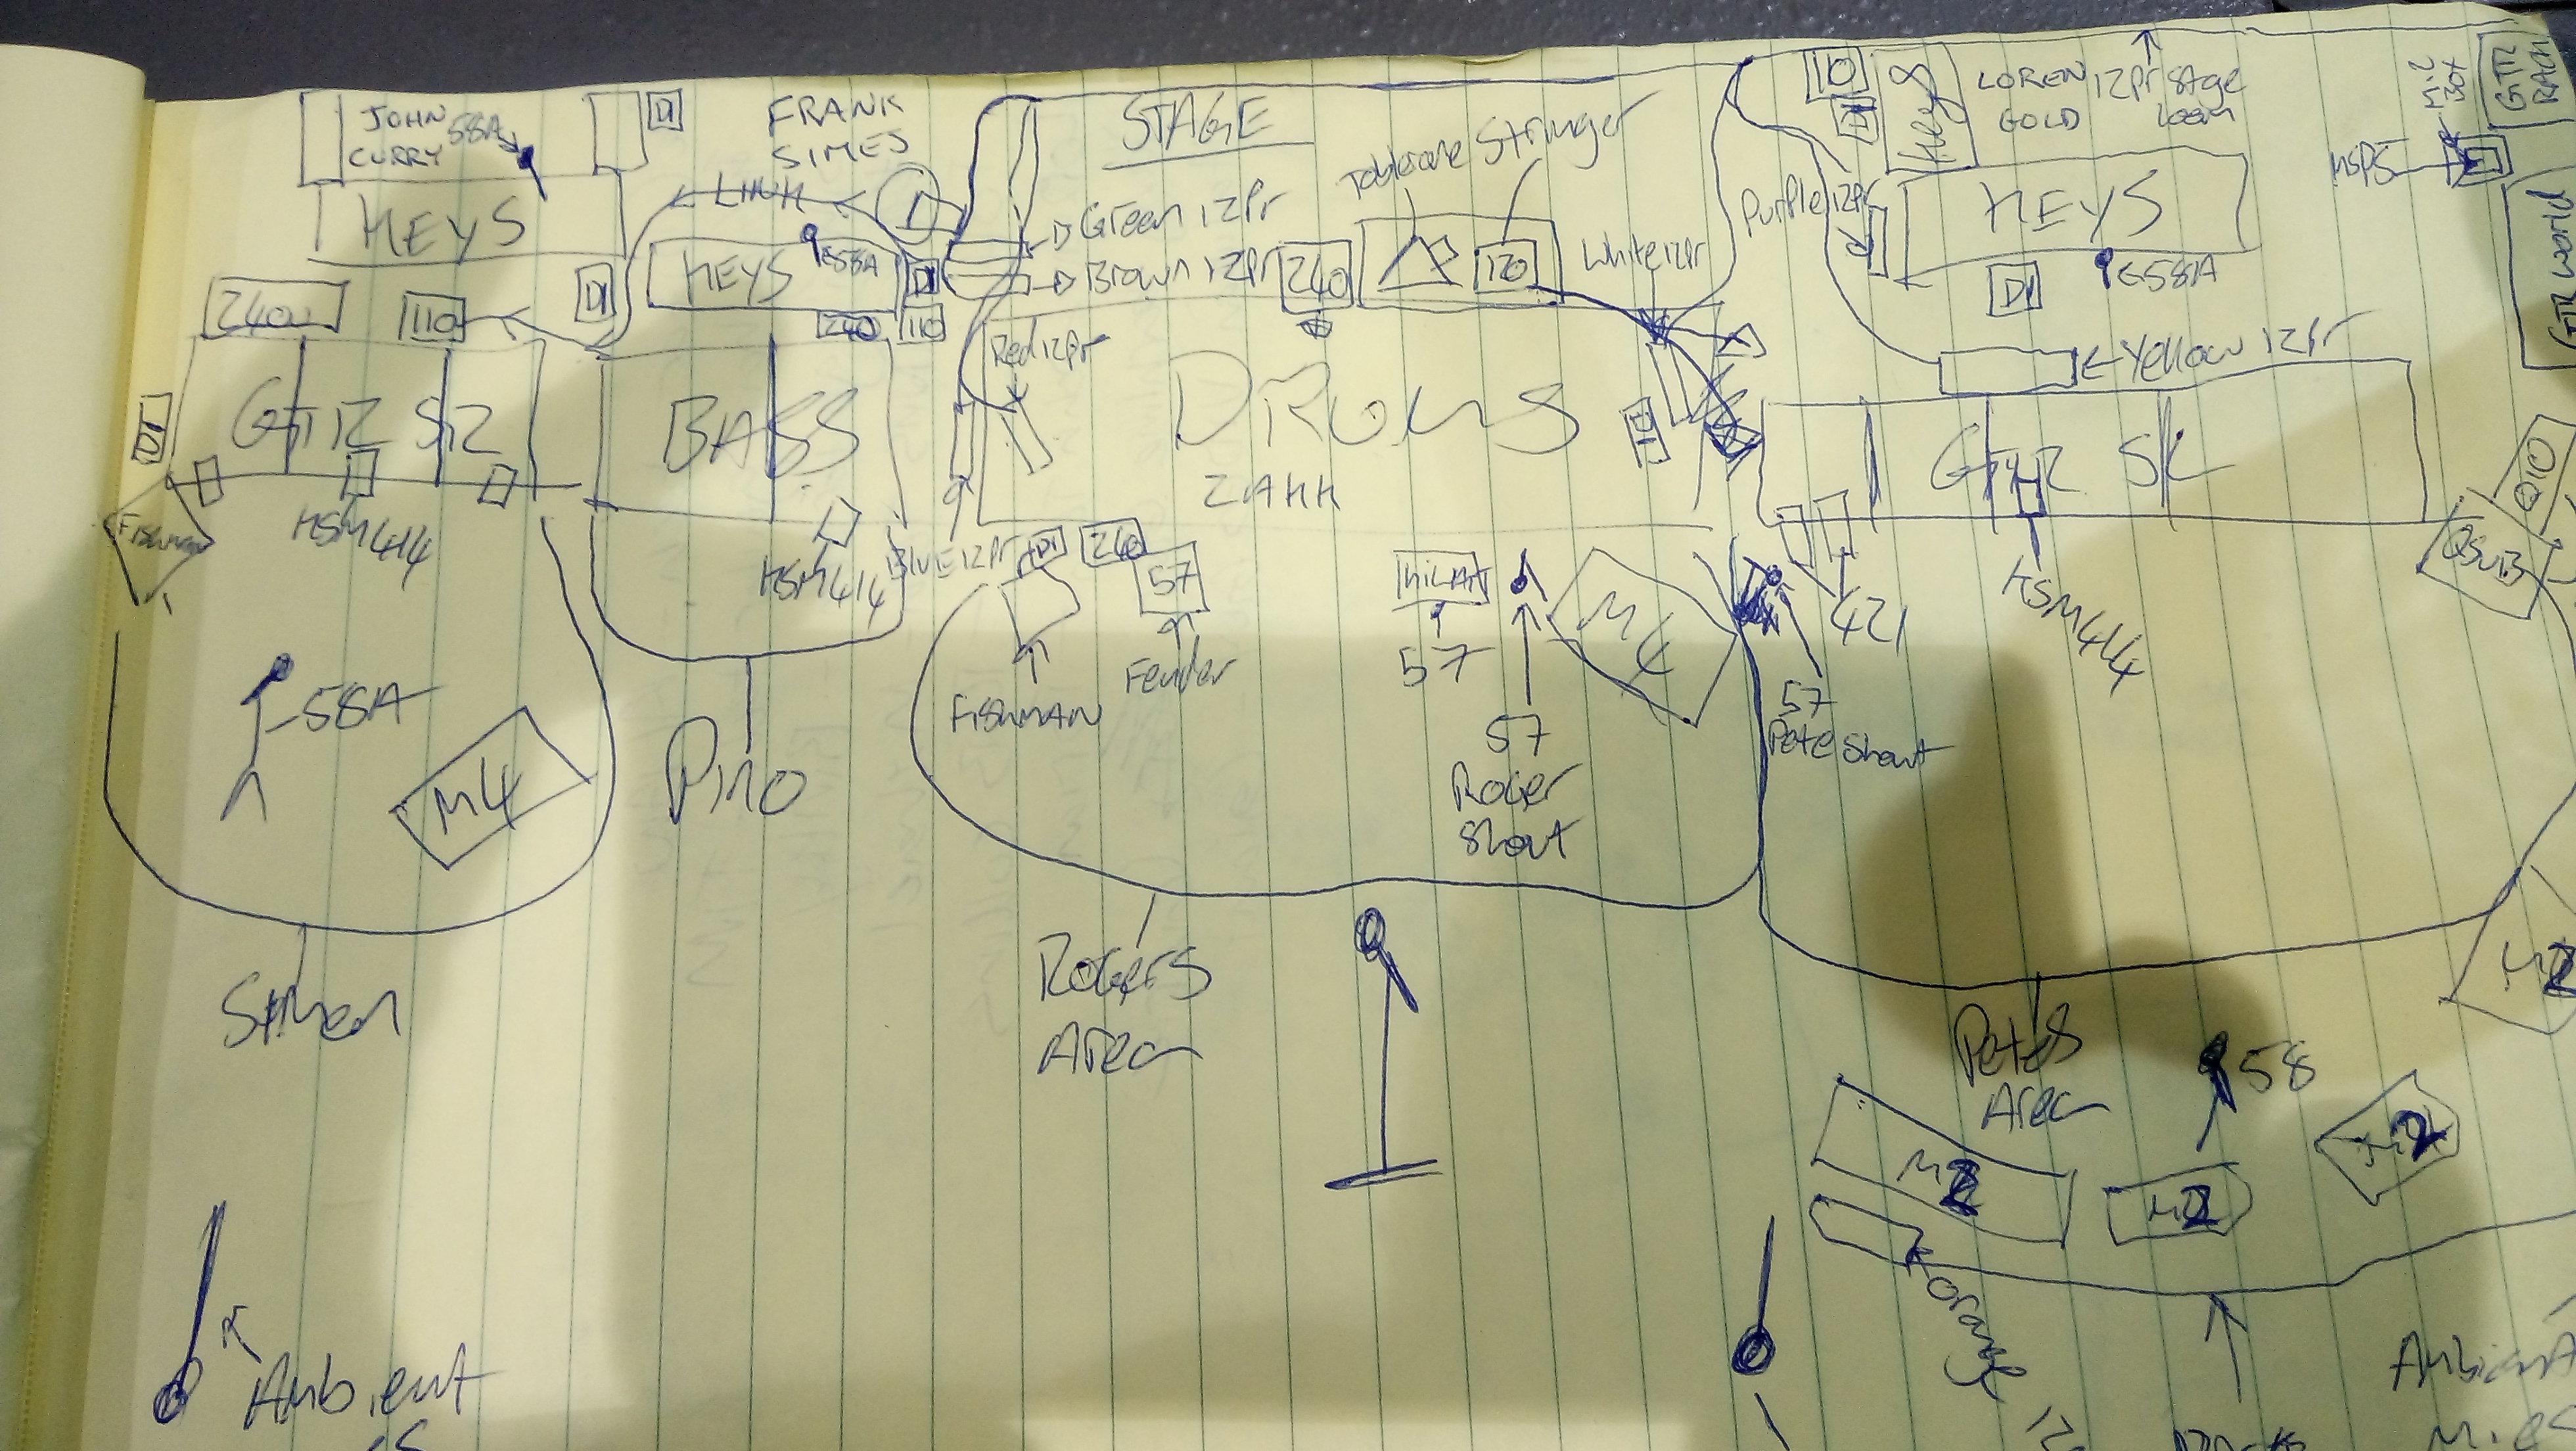 JOHN
CURRY
58A
DI
FRANK
SIMES
STAGE
10
DI
Keys
LOREN
GOLD
12pr Stage
Loom
GTR
RACK
KEYS
LINK
KEYS
58A
DI
Green 12pr
Brown 12pr
240
120
Stringer
White 12pr
Purple 12pr
KEYS
DI
58A
GTR World
240v
110
DI
240
110
Red 12pr
Yellow 12pr
DI
GTR SZ
BASS
DRUMS
ZAKK
GTR
Q10
Fishman
KSM414
KSM414
BLUE 12pr
DI
240
57
Fender
FISHMAN
57
57
Roger
Shout
M4
57
Pete Shout
421
KSM414
58A
M4
Pino
Simon
Rogers
Area
Pete's
Area
58
M2
M2
M2
M2
Orange
Ambient